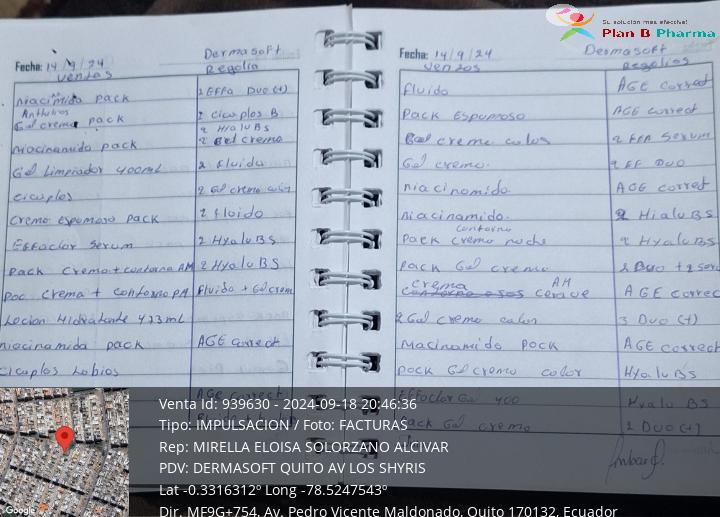 Su solución mas efectiva!
Plan B Pharma
Fecha: 14/9/24
Dermasoft
Ventas
Regalia
Niacimida pack
2 EFFA DUO (+)
Anthelios
Gel crema pack
2 cicaplos B
2 HialuBS
Niacinamida pack
2 Gel crema
Gel Limpiador 400ml
2 Fluido
cicaplos
2 Gel crema color
Crema espumosa pack
2 Fluido
Effaclor Serum
2 HyaluBS
Pack Crema + contorno AM
2 HyaluBS
Crema + contorno PM
Fluido + Gel crem
Locion Hidratante 473 ml
Niacinamida pack
AGE correct
cicaplos Labios
AGE correct
Fecha: 14/9/24
Dermasoft
Ventas
Regalias
Fluido
AGE correct
Pack Espumoso
AGE correct
Gel crema color
2 EFA Serum
Gel crema.
2 EF DUO
Niacinamida.
AGE correct
Niacinamida.
2 HialuBS
contorno
Pack crema noche
2 HyaluBS
Pack Gel crema
2 Duo + 2 ser
crema
AM
AGE correc
2 Gel crema color
3 Duo (+)
Niacinamida Pock
AGE correct
Pack Gel crema color
Hyalu BS
Effaclor Ga 400
Hyalu BS
Pack Gel crema
2 DUO (+)
Venta Id: 939630 - 2024-09-18 20:46:36
Tipo: IMPULSACION / Foto: FACTURAS
Rep: MIRELLA ELOISA SOLORZANO ALCIVAR
PDV: DERMASOFT QUITO AV LOS SHYRIS
Lat -0.3316312º Long -78.5247543º
Dir. MF9G+754, Av. Pedro Vicente Maldonado, Quito 170132, Ecuador
Google